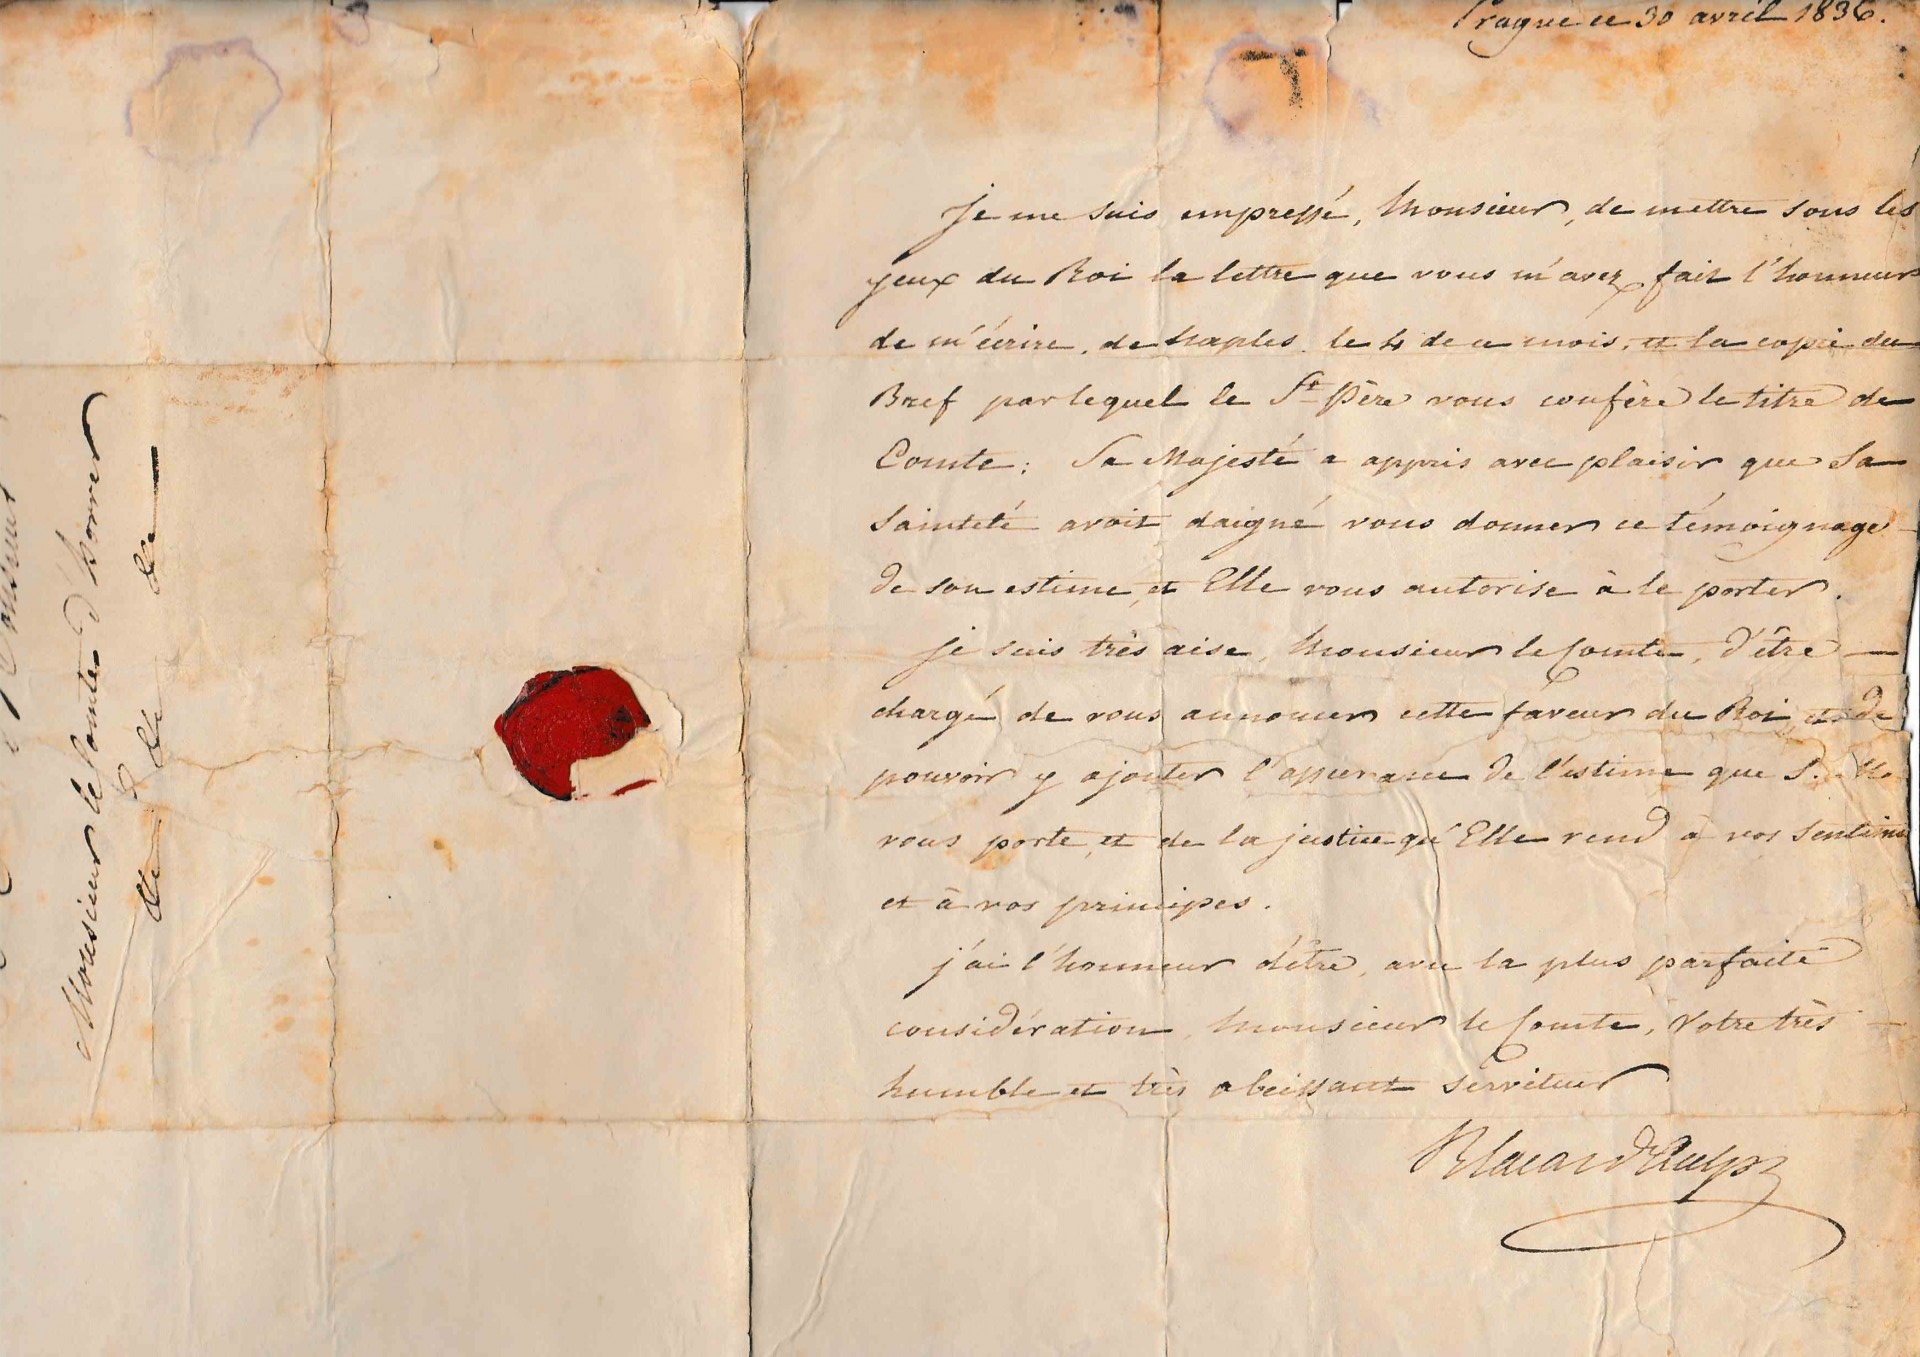 Prague ce 30 avril 1836.
Je me suis empressé, Monsieur, de mettre sous les
yeux du Roi la lettre que vous m'avez fait l'honneur
de m'écrire, de Naples, le 4 de ce mois, et la copie du
Bref par lequel le St Père vous confère le titre de
Comte; Sa Majesté a appris avec plaisir que Sa
Sainteté avoit daigné vous donner ce témoignage
de son estime, et Elle vous autorise à le porter.
je suis très aise, Monsieur le Comte, d'être
chargé de vous annoncer cette faveur du Roi, et de
pouvoir y ajouter l'assurance de l'estime que S. M.
vous porte, et de la justice qu'Elle rend à vos sentimens
et à vos principes.
j'ai l'honneur d'être, avec la plus parfaite
considération, Monsieur le Comte, Votre très
humble et très obéissant serviteur
Blacas d'Aulps
Monsieur
Monsieur le Comte d'horrer
&c &c &c